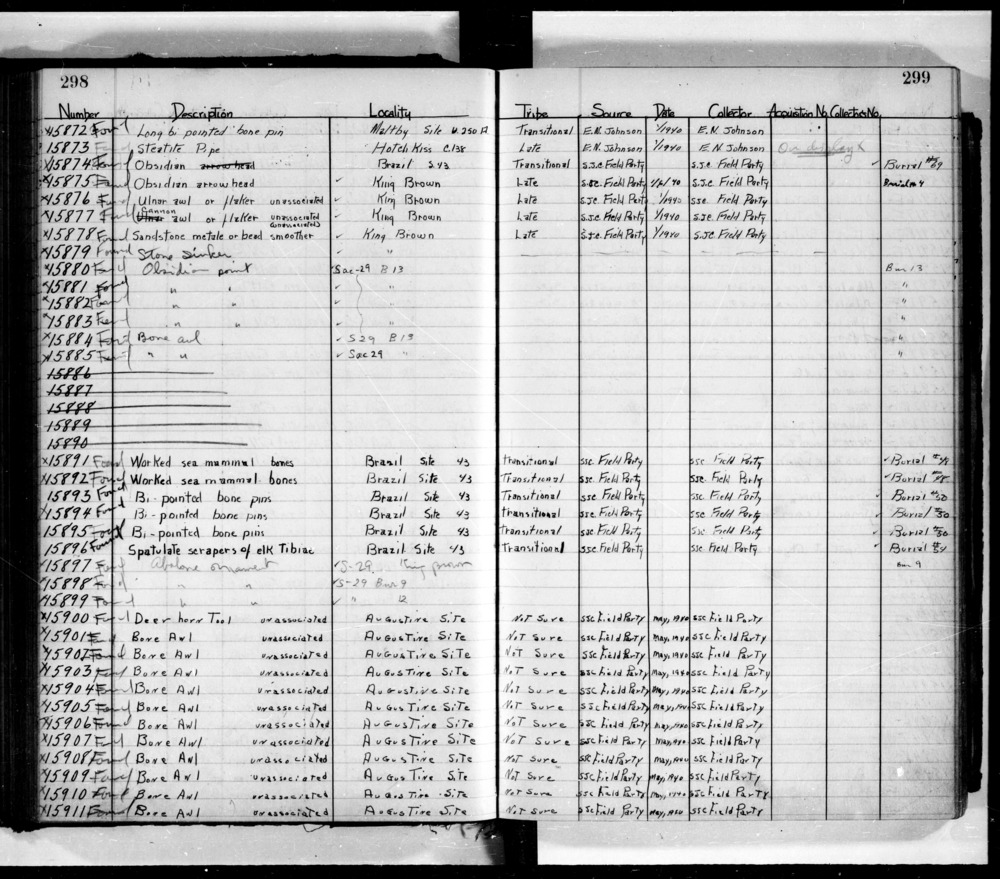 298
299
Number Description Locality Tribe Source Date Collector Acquisition No. Collection No.
x15872 Found Long bi pointed bone pin Maltby Site Transitional E.N. Johnson 1/1940 E.N. Johnson
15873 Steatite Pipe Hotch Kiss C.138 Late E.N. Johnson 1/1940 E.N. Johnson On display x
x15874 Found Obsidian arrowhead Brazil S.43 Transitional S.J.C. Field Party S.J.C. Field Party ✓ Burial #69
x15875 Found Obsidian arrowhead ✓ King Brown Late S.J.C. Field Party S.J.C. Field Party
x15876 Found Ulnar awl or flaker unassociated ✓ King Brown Late S.J.C. Field Party 1/1940 Field Party
x15877 Found Cannon Ulnar awl or flaker unassociated ✓ King Brown Late S.J.C. Field Party 1/1940 S.J.C. Field Party
x15878 Found Sandstone metate or bead smoother ✓ King Brown Late S.J.C. Field Party 1/1940 S.J.C. Field Party
x15879 Found Stone Sinker ✓ "
x15880 Found Obsidian point ✓ Sac-29 B 13 Bur 13
x15881 Found " " ✓ " "
x15882 Found ✓ "
x15883 Found " " ✓ " "
x15884 Found Bone awl ✓ S 29 B 13 "
x15885 Found " " ✓ Sac 29 " "
15886
15887
15888
15889
15890
x15891 Found Worked sea mammal bones Brazil Site 43 transitional SSC. Field Party SSC Field Party ✓ Burial #48
x15892 Found Worked sea mammal bones Brazil Site 43 Transitional SSC. Field Party SSC. Field Party Burial #48
15893 Found Bi-pointed bone pins Brazil Site 43 Transitional SSC. Field Party SSC. Field Party ✓ Burial #30
x15894 Found Bi-pointed bone pins Brazil Site 43 transitional SSC. Field Party SSC. Field Party ✓ Burial #30
15895 Found x Bi-pointed bone pins Brazil Site 43 Transitional SSC Field Party SSC Field Party ✓ Burial #30
15896 Found Spatulate scrapers of elk Tibiae Brazil Site 43 Transitional SSC. Field Party SSC Field Party ✓ Burial
x15897 Found Abalone ornament ✓ S-29 King Brown Bur 9
x15898 Found " " ✓ S-29 Bur 9
x15899 Found " " ✓ " 12
x15900 Found Deer horn Tool unassociated Augustine Site Not Sure SSC Field Party May, 1940 SSC Field Party
x15901 Bone Awl unassociated Augustine Site Not Sure SSC Field Party May, 1940 SSC Field Party
x15902 Found Bone Awl unassociated Augustine Site Not Sure SSC Field Party May, 1940 SSC Field Party
x15903 Found Bone Awl unassociated Augustine Site Not Sure SSC Field Party May, 1940 SSC Field Party
x15904 Found Bone Awl unassociated Augustine Site Not Sure SSC Field Party May, 1940 SSC Field Party
x15905 Found Bone Awl unassociated Augustine Site Not Sure SSC Field Party May, 1940 SSC Field Party
x15906 Found Bone Awl unassociated Augustine Site Not Sure SSC Field Party May, 1940 SSC Field Party
x15907 Found Bone Awl unassociated Augustine Site Not Sure SSC Field Party May, 1940 SSC Field Party
x15908 Found Bone Awl unassociated Augustine Site Not Sure SSC Field Party May, 1940 SSC Field Party
x15909 Found Bone Awl unassociated Augustine Site Not Sure SSC Field Party May, 1940 SSC Field Party
x15910 Found Bone Awl unassociated Augustine Site Not Sure SSC Field Party May, 1940 SSC Field Party
x15911 Found Bone Awl unassociated Augustine Site Not Sure SSC Field Party May, 1940 SSC Field Party